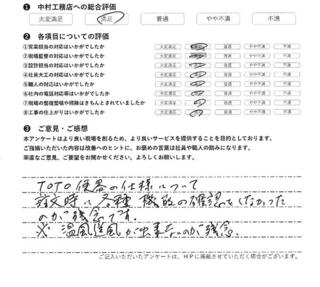 ❶ 中村工務店への総合評価
大変満足 満足 普通 やや不満 不満
❷ 各項目についての評価
①営業担当の対応はいかがでしたか 大変満足 普通 やや不満 不満
②現場監督の対応はいかがでしたか 大変満足 普通 やや不満 不満
③設計担当の対応はいかがでしたか 大変満足 普通 やや不満 不満
④社員大工の対応はいかがでしたか 大変満足 普通 やや不満 不満
⑤職人の対応はいかがでしたか 大変満足 普通 やや不満 不満
⑥社内の電話対応等はいかがでしたか 大変満足 普通 やや不満 不満
⑦現場の整理整頓や掃除はきちんとされていましたか 大変満足 普通 やや不満 不満
⑧工事の仕上がりはいかがでしたか 大変満足 普通 やや不満 不満
❸ ご意見・ご感想
本アンケートはより良い現場を創るため、より良いサービスを提供することを目的としております。
ご指摘いただいた内容は改善へのヒントに、お褒めの言葉は社員や職人の励みになります。
率直なご意見、ご要望をお聞かせください。よろしくお願いします。
TOTO便器の仕様について
注文時に各種機能の確認をしなかった
のが残念です。
※温風送風が出来ないのが残念。
ご記入いただいたアンケートは、HPに掲載させていただく場合がございます。